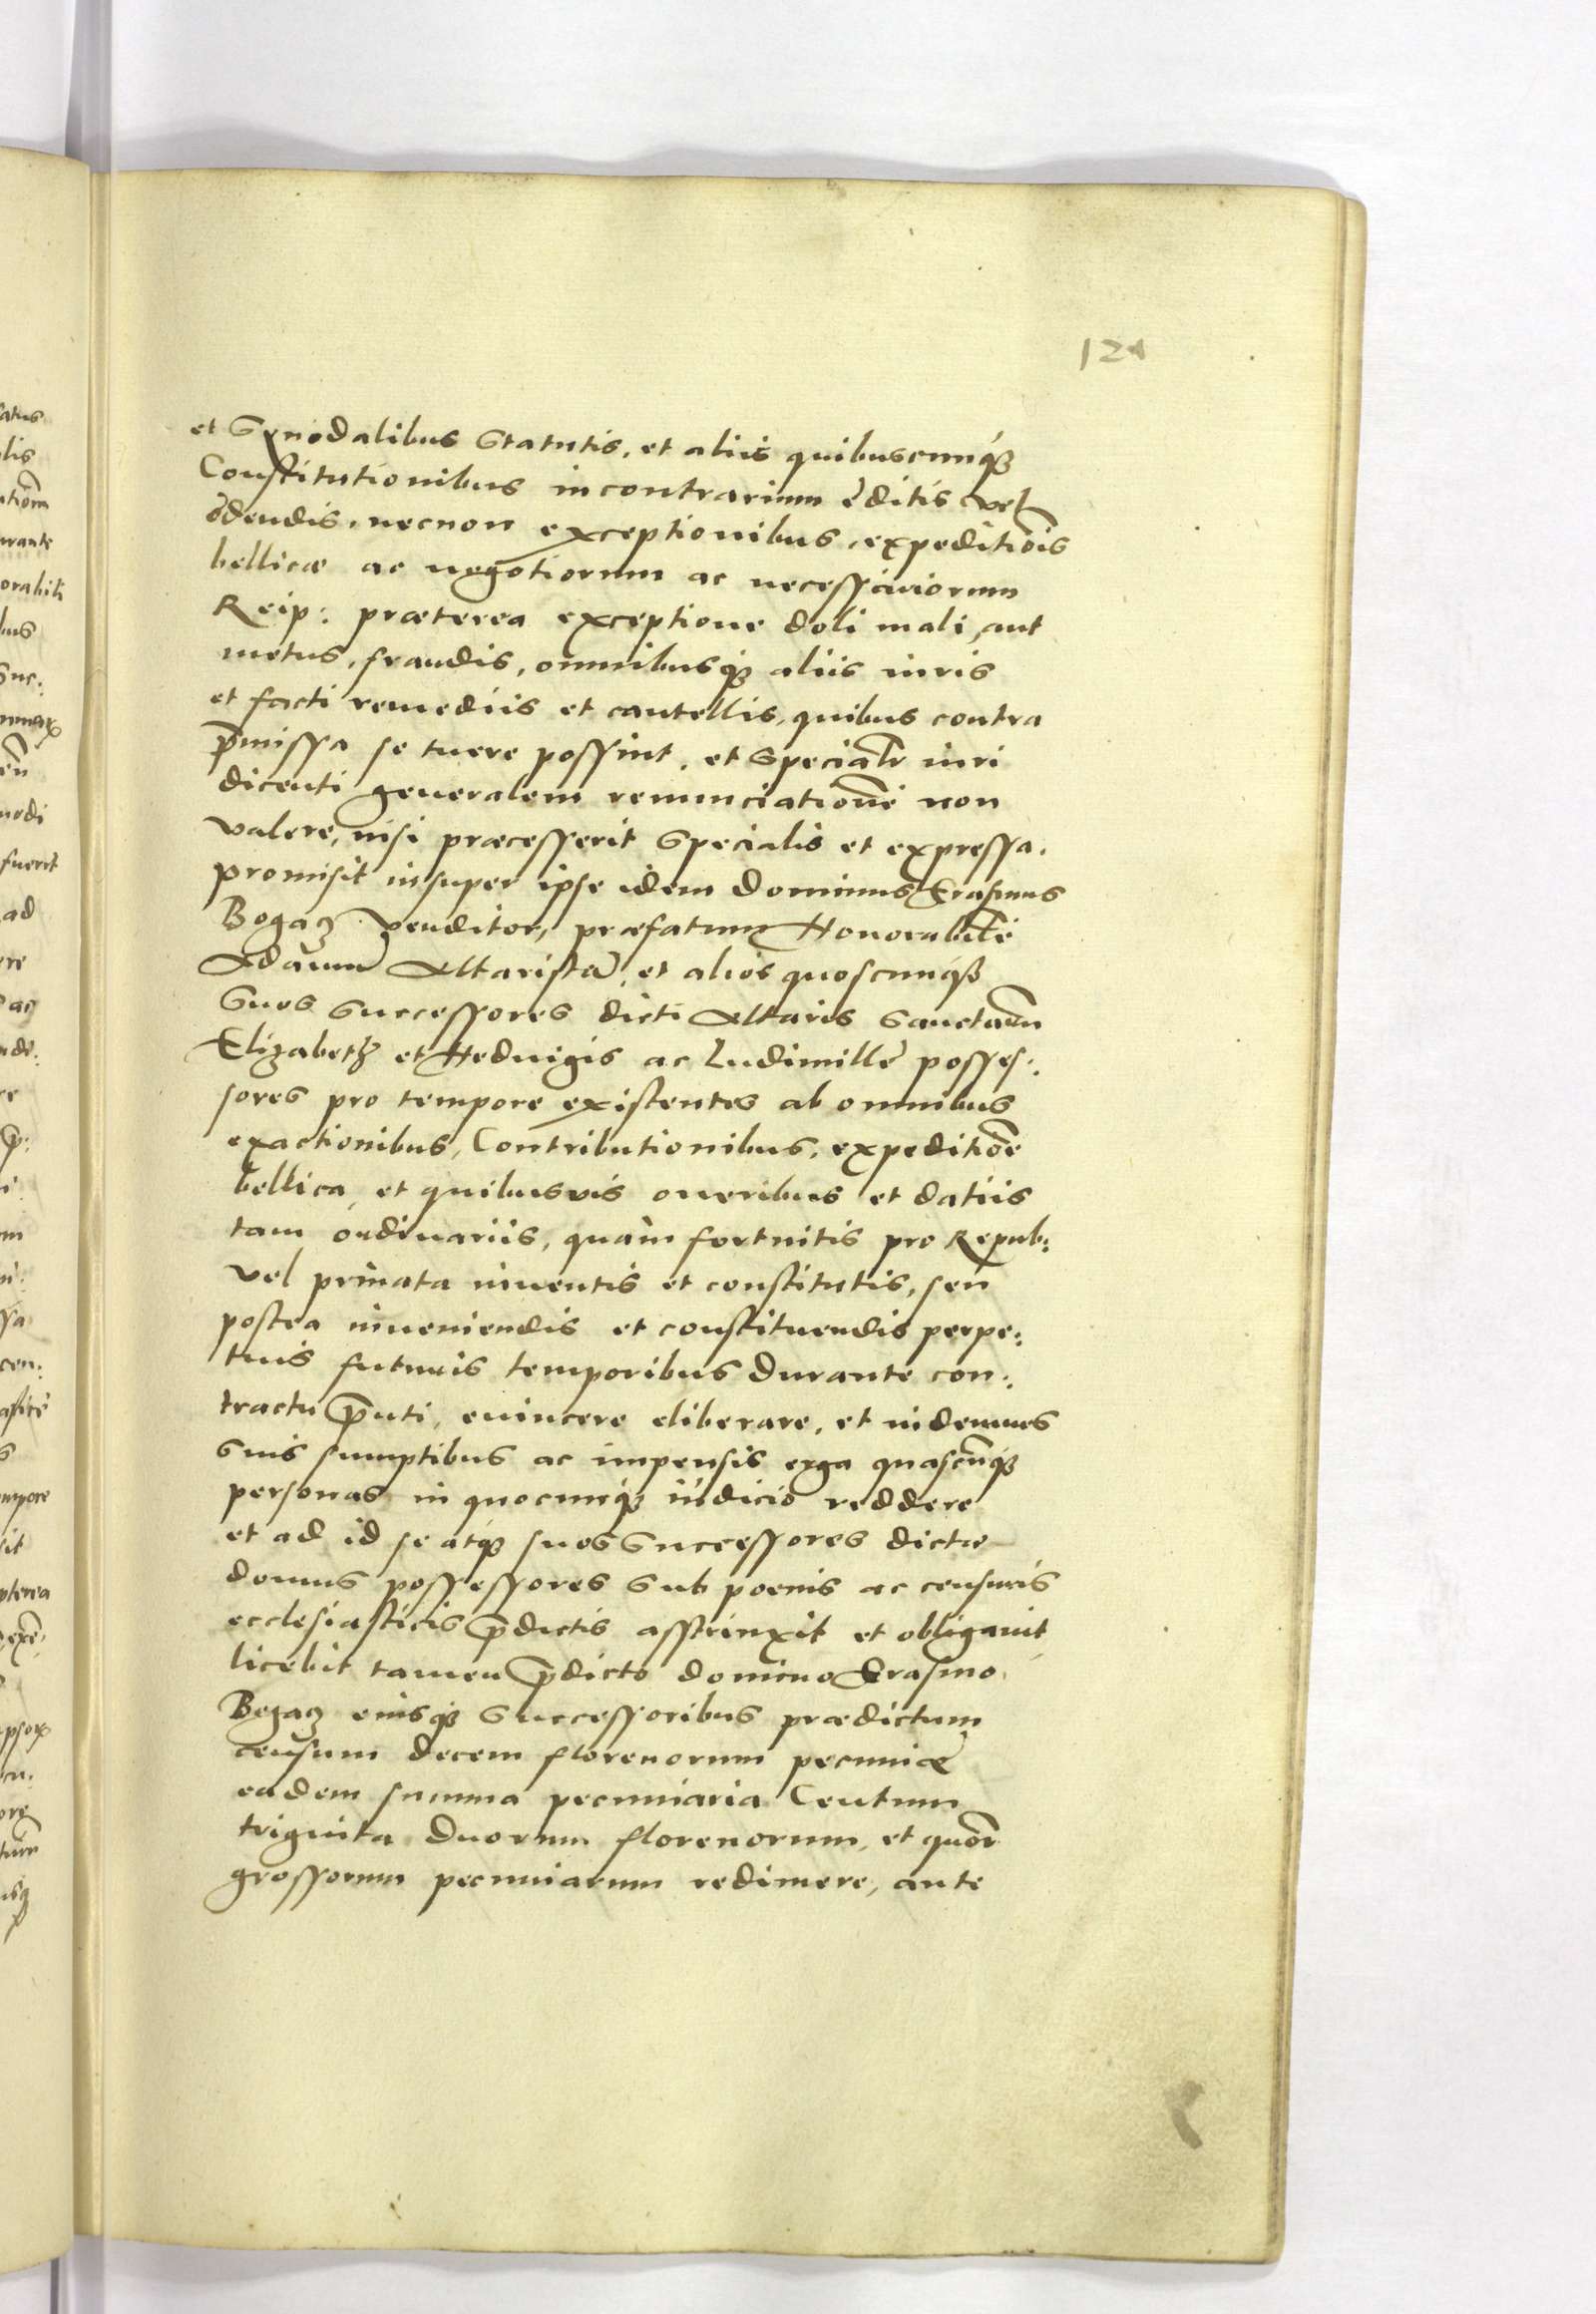 121
et Synodalibus Statutis, et aliis quibuscunq3
Constitutionibus in contrarium editis vel
edendis, necnon exceptionibus, expeditiois
bellicæ ac negotiorum ac necessariorum
Reip: præterea exceptione doli mali, aut
metus, fraudis, omnibusq3 aliis iuris
et facti remediis et cautellis, quibus contra
p̄missa se tuere possint, et Specialr̄ iuri
dicenti generalem renunciationē non
valere, nisi præcesserit Specialis et expressa.
promisit insuper ipse idem Dominus Erasmus
Bogacz venditor, præfatum Honorabilē
Adamum Altaristā, et alios quoscunq3
Suos Successores dicti Altaris Sanctarū
Elizabeth et Heduigis ac Ludimillę posses:
sores pro tempore existentes ab omnibus
exactionibus, Contributionibus, expeditiōe
bellica, et quibusuis oneribus et datiis
tam ordinariis, quàm fortuitis pro Repub:
vel priuata inuentis et constitutis, seu
postea inueniendis et constituendis perpe:
tuis futuris temporibus Durante con:
tractu p̄nti, euincere eliberare, et indemnes
Suis sumptibus ac impensis erga quascūq3
personas in quocunq3 iudicio reddere
et ad id se atq3 suos Successores dictæ
domus possessores Sub poenis ac censuris
ecclesiasticis p̄dictis asstrinxit et obligauit
licebit tamen p̄dicto domino Erasmo
Bogacz eiusq3 Successoribus prædictum
censum decem florenorum pecuniæ
eadem summa pecuniaria Centum
triginta Duorum florenorum, et quor̄
grossorum pecuniarum redimere, ante